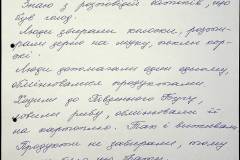 Знаю з розповідей батьків, що
був голод.
Люди збирали колоски, розти-
рали зерно на муку, пекли кор-
жі.
Люди допомагали один одному,
обмінювалися продуктами.
Ходили до Південного Бугу,
ловили рибу, обмінювали її
на картоплю. Так і виживали.
Продукти не забирали, тому
було що